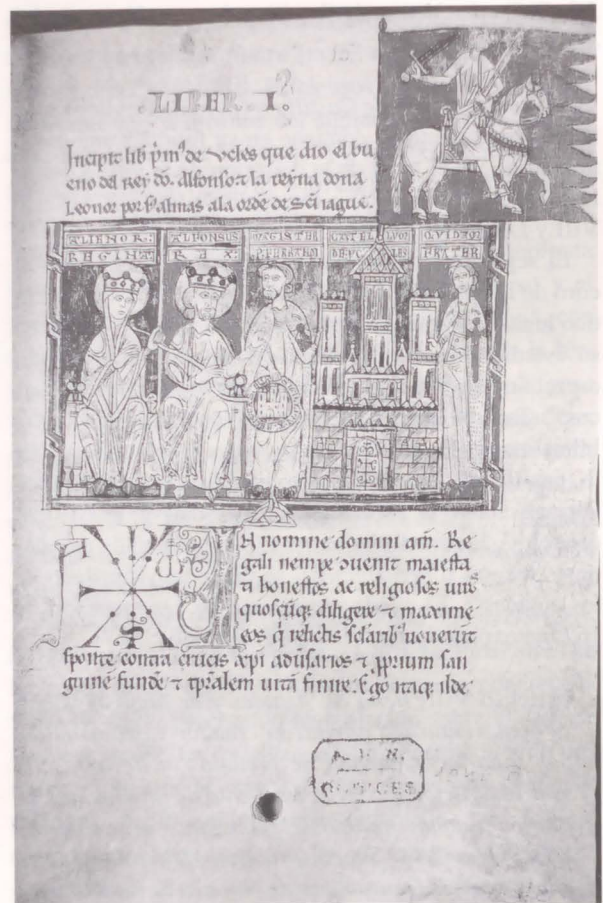 LIBER I?
Incipit lib p̃mᵘˢ de ucles que dio el bu
eno del Rey dõ. Alfonso ⁊ la reyna dona
Leonor por sᵃˢ almas ala ordẽ de Sc̃i iague.
ALIENOR: ALFONSUS MAGISTER CASTELLUM QVIDAM
REGINA: REX: P. FERRANDI DE VCLES FRATER
IN nomine domini am̃. Re
gali nempe ↄuenit maiesta
ti honestos ac religiosos uiros
quoscũq; diligere ⁊ maxime
eos q̇ relictis sclarib' uouerũt
sponte contra crucis xp̃i adũsarios ⁊ ꝓprium san
guinẽ fundẽ ⁊ tp̃ralem uitã finire. Ego itaq; ilde
A. H. N.